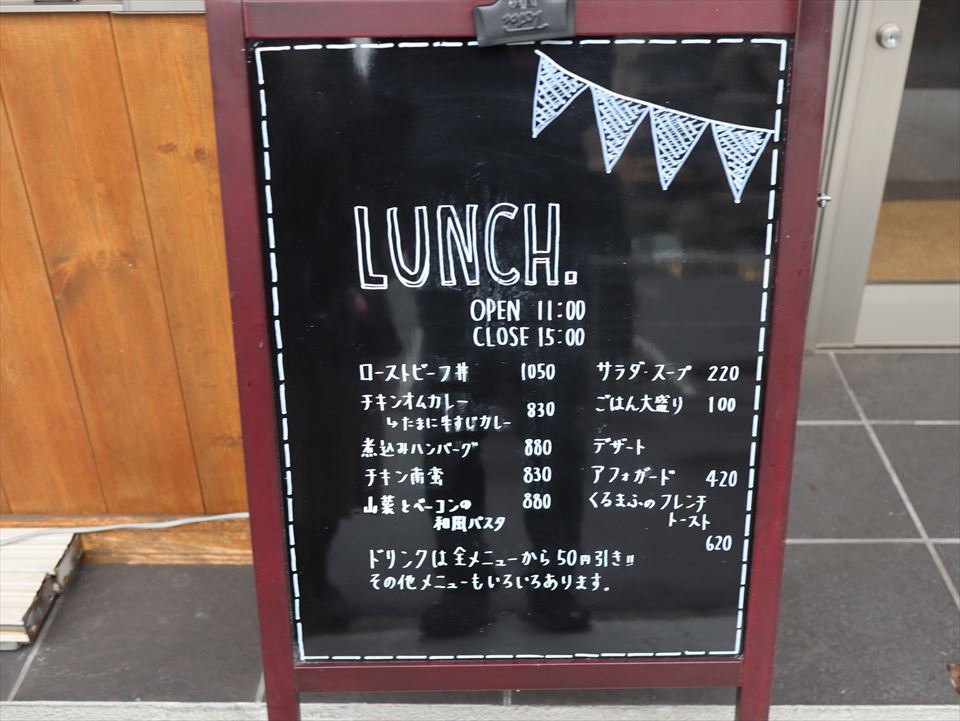 LUNCH.
OPEN 11:00
CLOSE 15:00
ローストビーフ丼 1050
チキンオムカレー 830
↳たまに牛すじカレー
煮込みハンバーグ 880
チキン南蛮 830
山菜とベーコンの 880
和風パスタ
サラダ・スープ 220
ごはん大盛り 100
デザート
アフォガード 420
くるまふのフレンチ
トースト
620
ドリンクは全メニューから50円引き!!
その他メニューもいろいろあります。